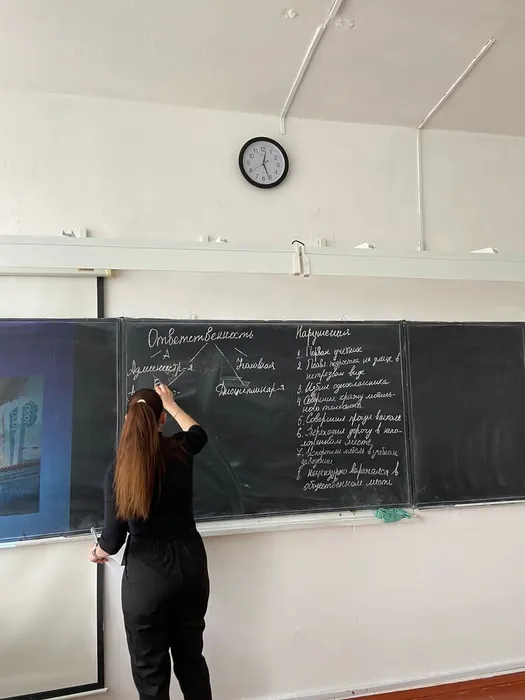 Ответственность
Административ-я
Уголовная
Дисциплинар-я
Нарушения
1. Порвал учебник
2. Появл. подростка на улице в
нетрезвом виде
3. Избил одноклассника
4 Совершил кражу мобиль-
ного телефона
5. Совершил прогул в школе
6. Переходил дорогу в непо-
ложенном месте
7. Испортил мебель в учебном
заведении
8 Нецензурно выражался в
общественном месте